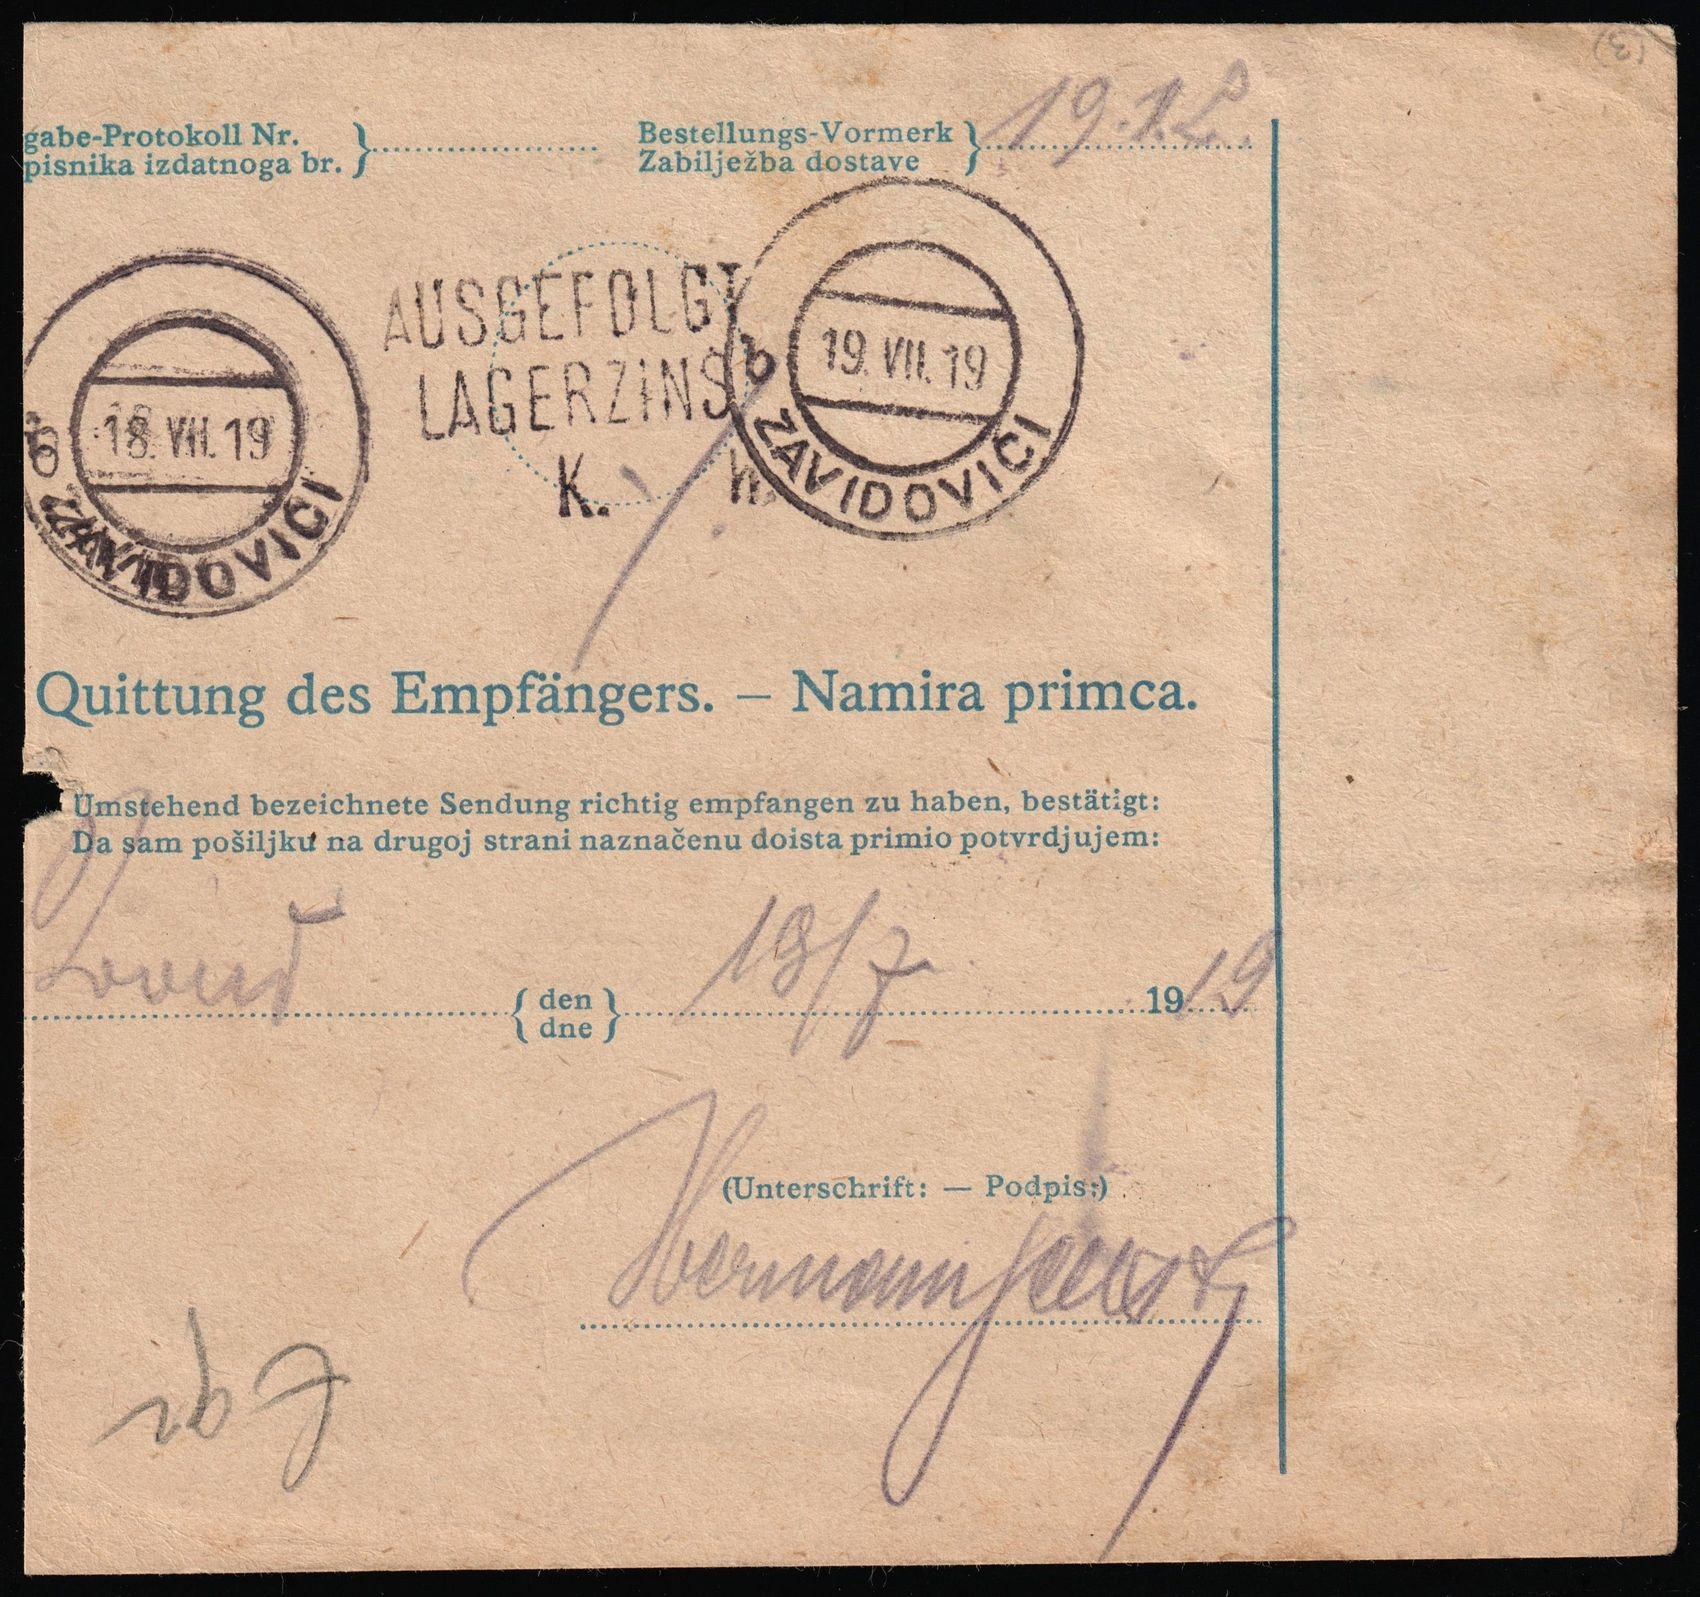 (3)
19.1.L.
gabe-Protokoll Nr. }
pisnika izdatnoga br. }
Bestellungs-Vormerk }
Zabilježba dostave }
AUSGEFOLGT
LAGERZINS
K. h.
b 18. VII. 19 ZAVIDOVICI
b 19. VII. 19 ZAVIDOVICI
Quittung des Empfängers. — Namira primca.
Umstehend bezeichnete Sendung richtig empfangen zu haben, bestätigt:
Da sam pošiljku na drugoj strani naznačenu doista primio potvrdjujem:
{ den } 19/7 1919
{ dne }
(Unterschrift: — Podpis:)
Hermann